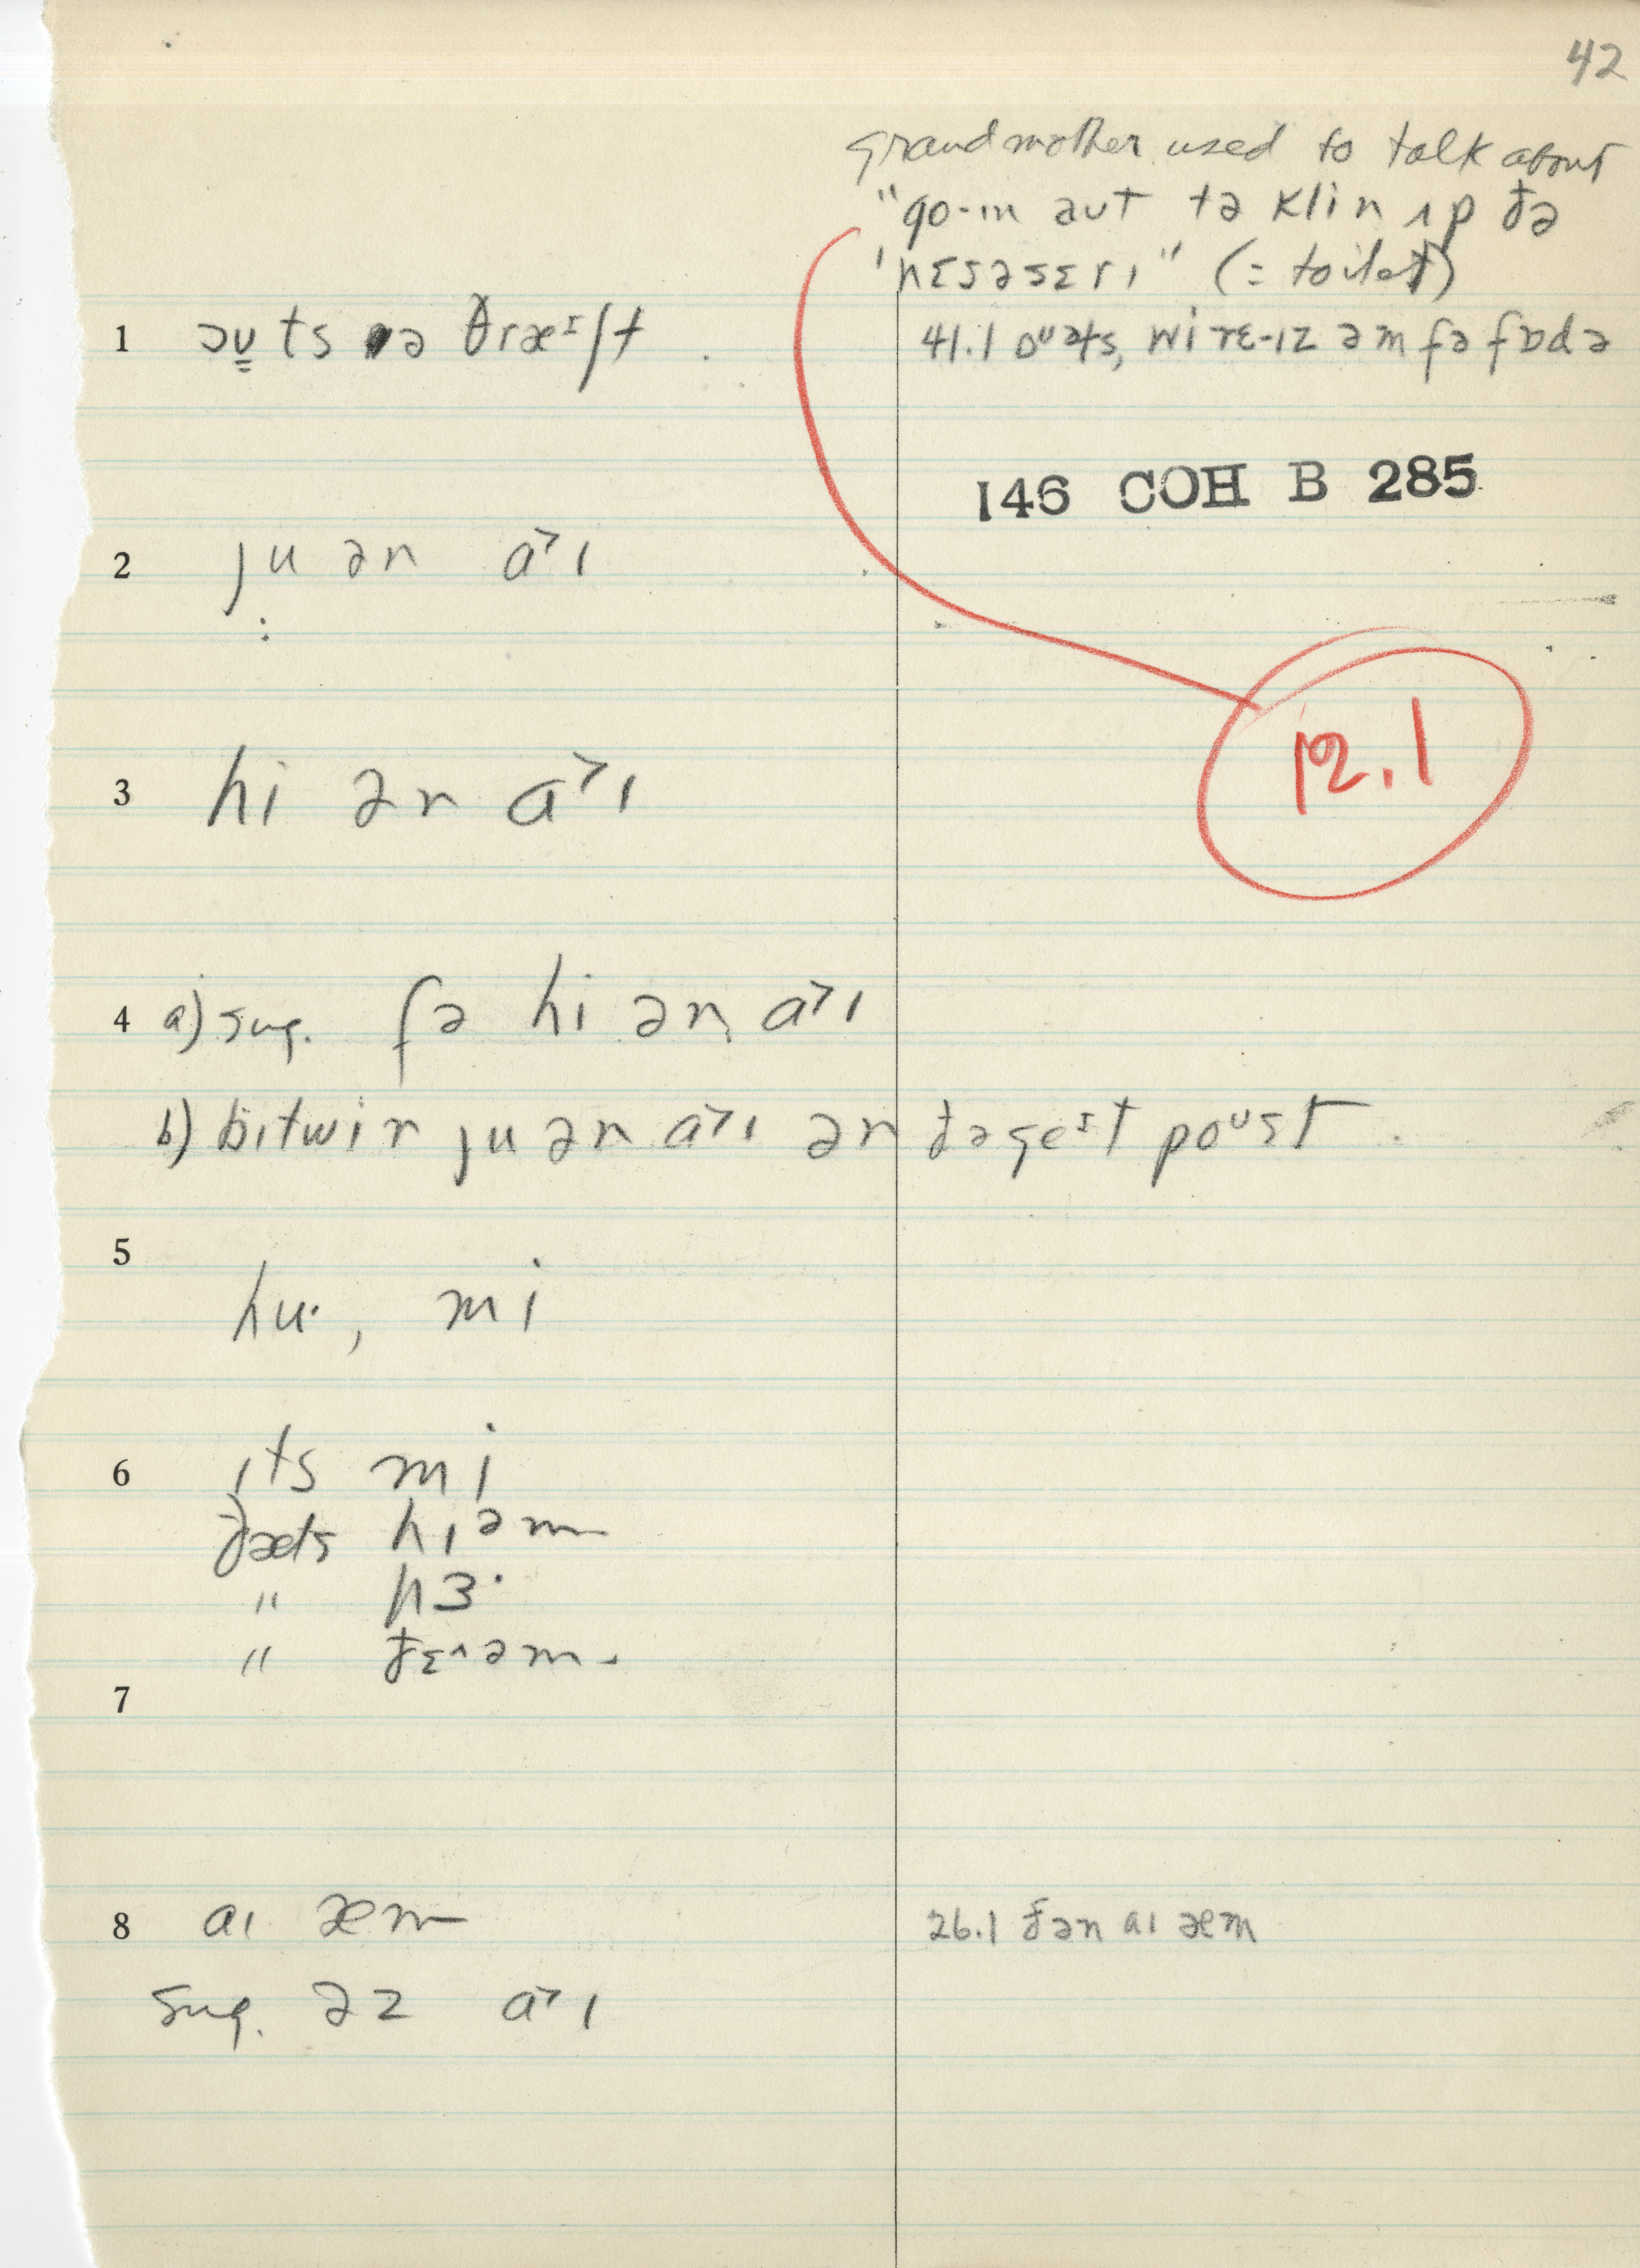 42
grandmother used to talk about
"go-ɪn aut tə klin ʌp ðə
'nɛsəsɛrɪ" (= toilet)
1 ɔʊts ə θræᶦʃt
41.1 oᶷəts, wi rɛ-ɪz əm fə fɒdə
146 COH B 285
2 ju ən a˃ɪ
12.1
3 hi ən a˃ɪ
4 a) sug. fə hi ən a˃ɪ
b) bɪtwin ju ən a˃ɪ ən ðə geᶦt poᶷst
5
hu·, mi
6 ɪts mi
ðæts hɪəm
" hɜ·
" ðɛ^əm
7
8 aɪ æm
26.1 ðən aɪ æm
sug. əz a˃ɪ